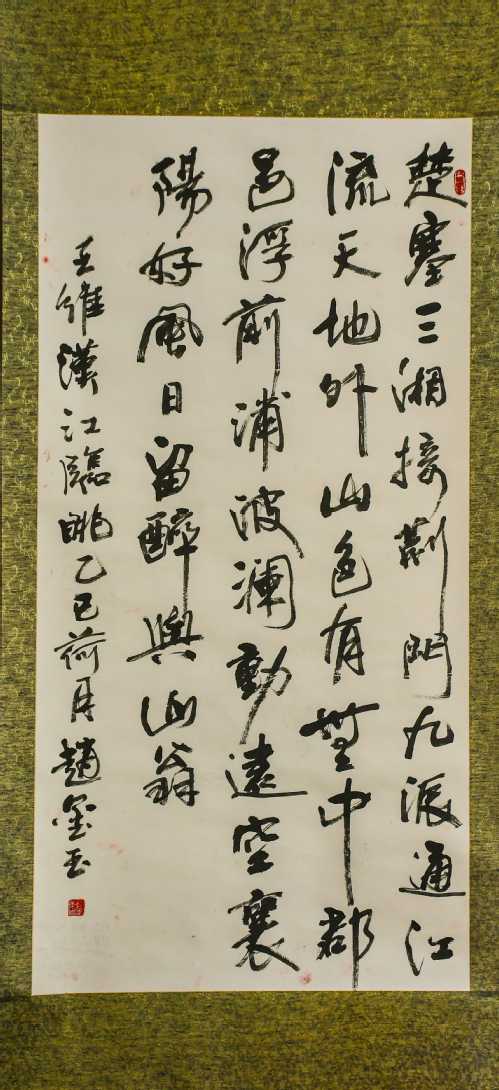 楚塞三湘接荆門九派通江
流天地外山色有無中郡
邑浮前浦波澜動遠空襄
陽好風日留醉與山翁
王維漢江臨眺乙巳荷月趙金玉